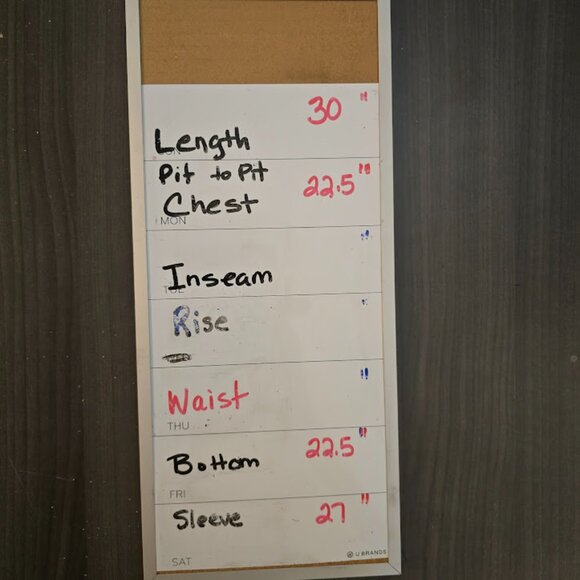 30 "
Length
Pit to Pit
22.5 "
Chest
MON
"
Inseam
"
Rise
"
Waist
THU
22.5 "
Bottom
FRI
Sleeve 27 "
SAT
U BRANDS